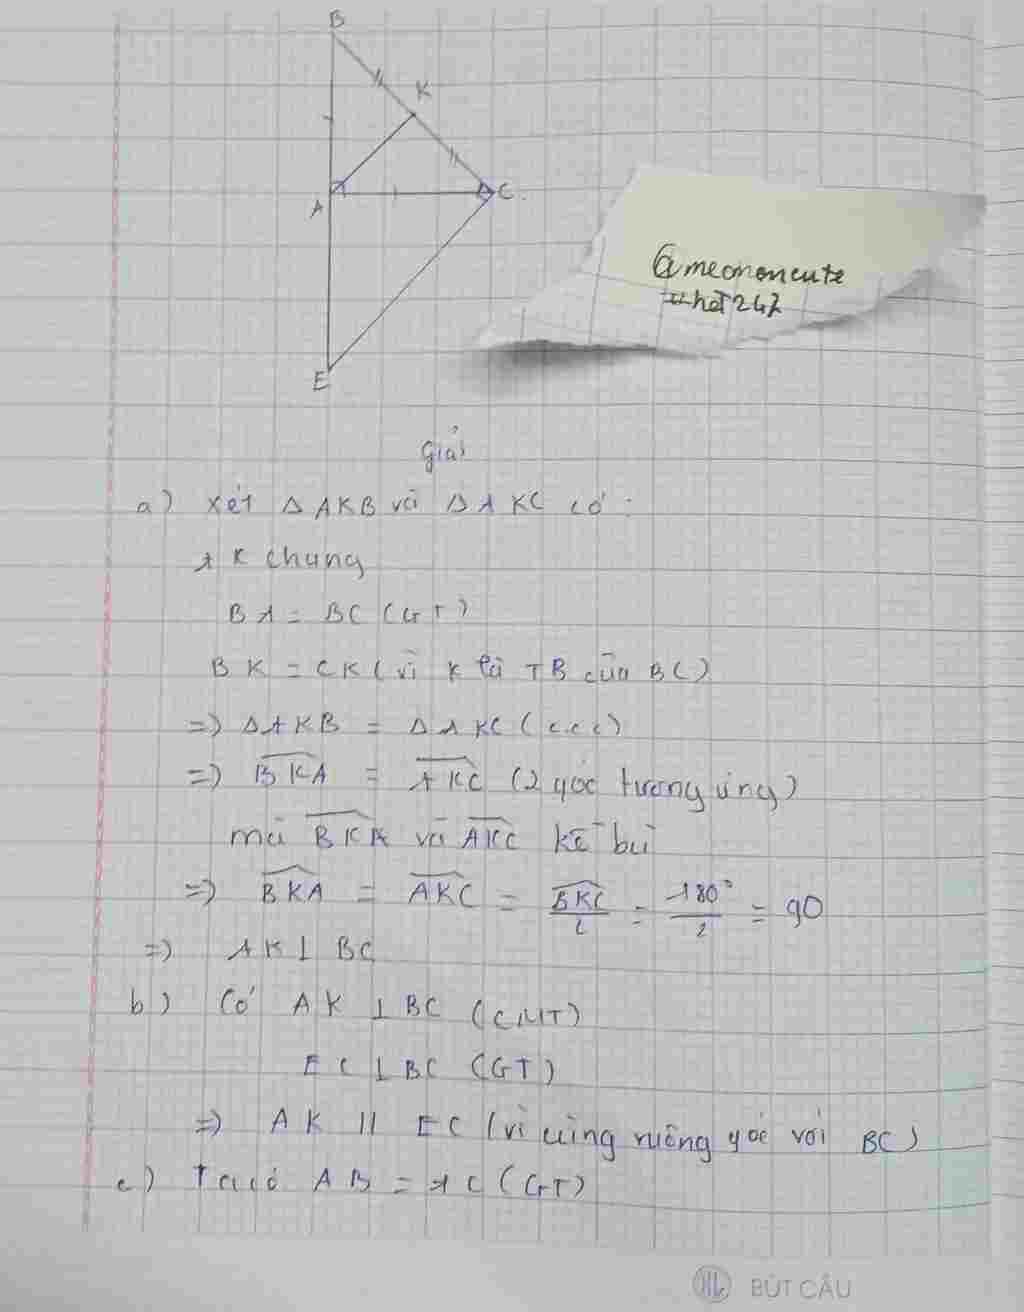 B
K
A
C
E
@meomoncute
#hot247
Giải
a) Xét Δ AKB và Δ AKC có :
AK chung
BA = BC (GT)
BK = CK (vì K là TB của BC)
=) ΔAKB = ΔAKC (c.c.c)
=) BKA = AKC (2 góc tương ứng)
mà BKA và AKC kề bù
=) BKA = AKC = BKC/2 = 180°/2 = 90
=) AK ⊥ BC
b) Có AK ⊥ BC (CMT)
EC ⊥ BC (GT)
=) AK // EC (vì cùng vuông góc với BC)
c) Ta có AB = AC (GT)
BÚT CÂU